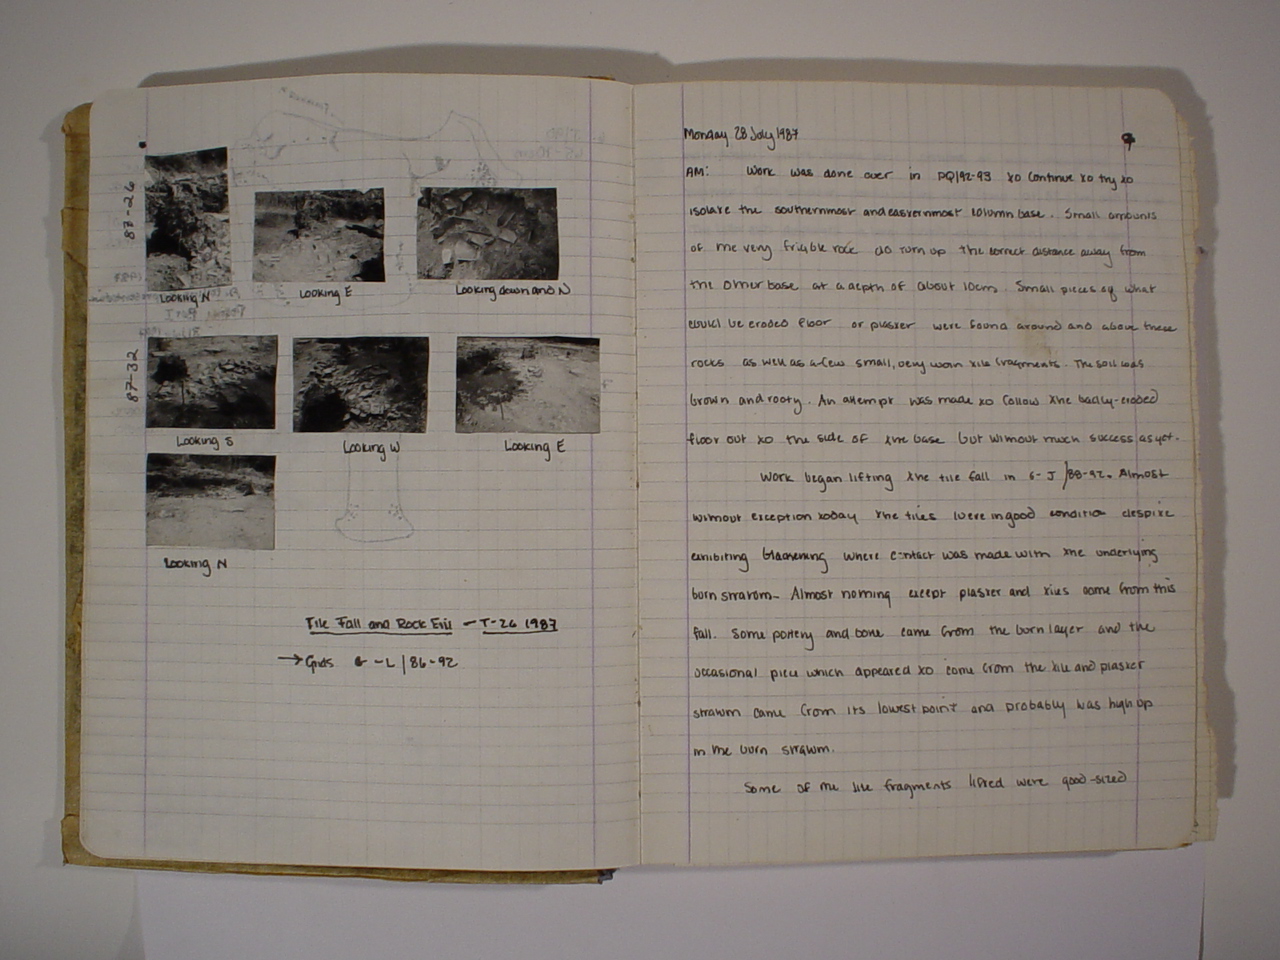 87-26
Looking N
Looking E
Looking down and N
87-32
Looking S
Looking W
Looking E
Looking N
Tile Fall and Rock Fill - T-26 1987
→ Grids G-L/86-92
Monday 28 July 1987
9
AM: Work was done over in PQ/92-93 to continue to try to
isolate the southernmost and easternmost column base. Small amounts
of the very friable rock do turn up the correct distance away from
the other base at a depth of about 10cm. Small pieces of what
could be eroded floor or plaster were found around and above these
rocks as well as a few small, very worn tile fragments. The soil was
brown and rooty. An attempt was made to follow the badly-eroded
floor out to the side of the base but without much success as yet.
Work began lifting the tile fall in G-J/88-92. Almost
without exception today the tiles were in good condition despite
exhibiting blackening where contact was made with the underlying
burn stratum. Almost nothing except plaster and tiles came from this
fall. Some pottery and bone came from the burn layer and the
occasional piece which appeared to come from the tile and plaster
stratum came from its lowest point and probably was high up
in the burn stratum.
Some of the tile fragments lifted were good-sized